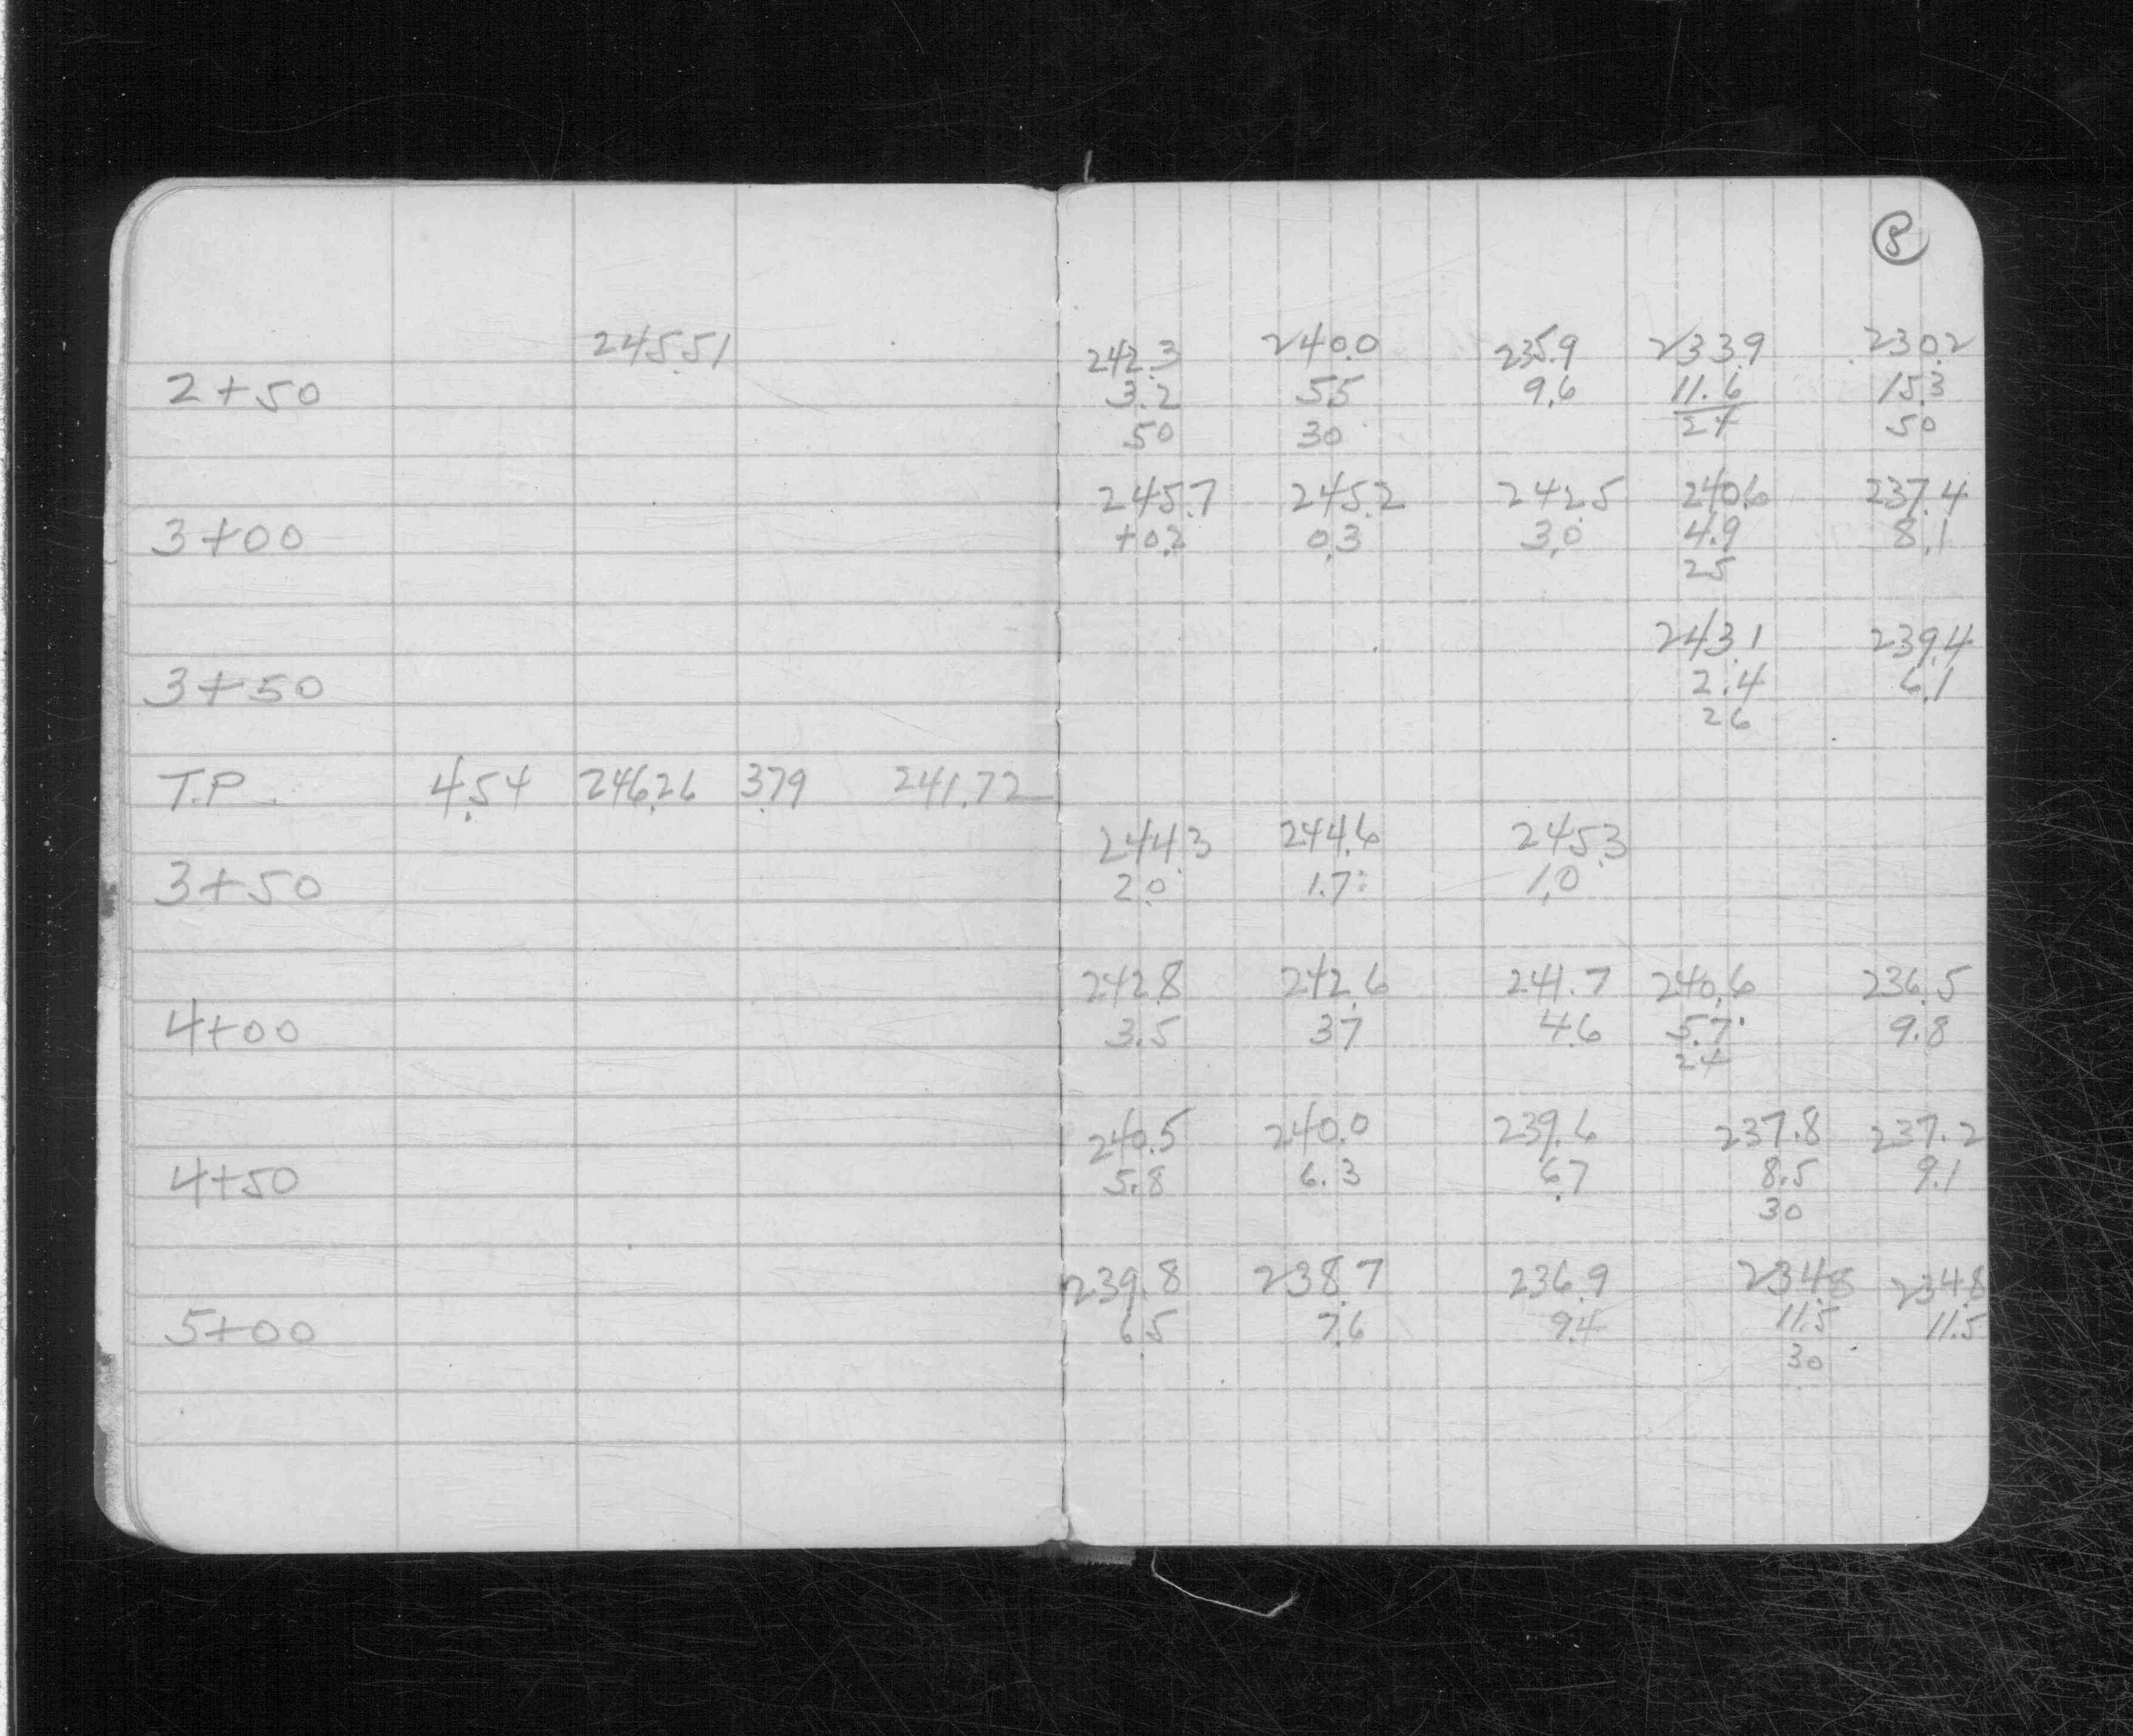 8
245.51
242.3 240.0 235.9 233.9 230.2
2+50 3.2 5.5 9.6 11.6 15.3
50 30 24 50
245.7 245.2 242.5 240.6 237.4
3+00 +0.2 0.3 3.0 4.9 8.1
25
243.1 239.4
3+50 2.4 6.1
26
T.P. 4.54 246.26 3.79 241.72
244.3 244.6 245.3
3+50 2.0 1.7 1.0
242.8 242.6 241.7 240.6 236.5
4+00 3.5 3.7 4.6 5.7 9.8
24
240.5 240.0 239.6 237.8 237.2
4+50 5.8 6.3 6.7 8.5 9.1
30
239.8 238.7 236.9 234.8 234.8
5+00 6.5 7.6 9.4 11.5 11.5
30